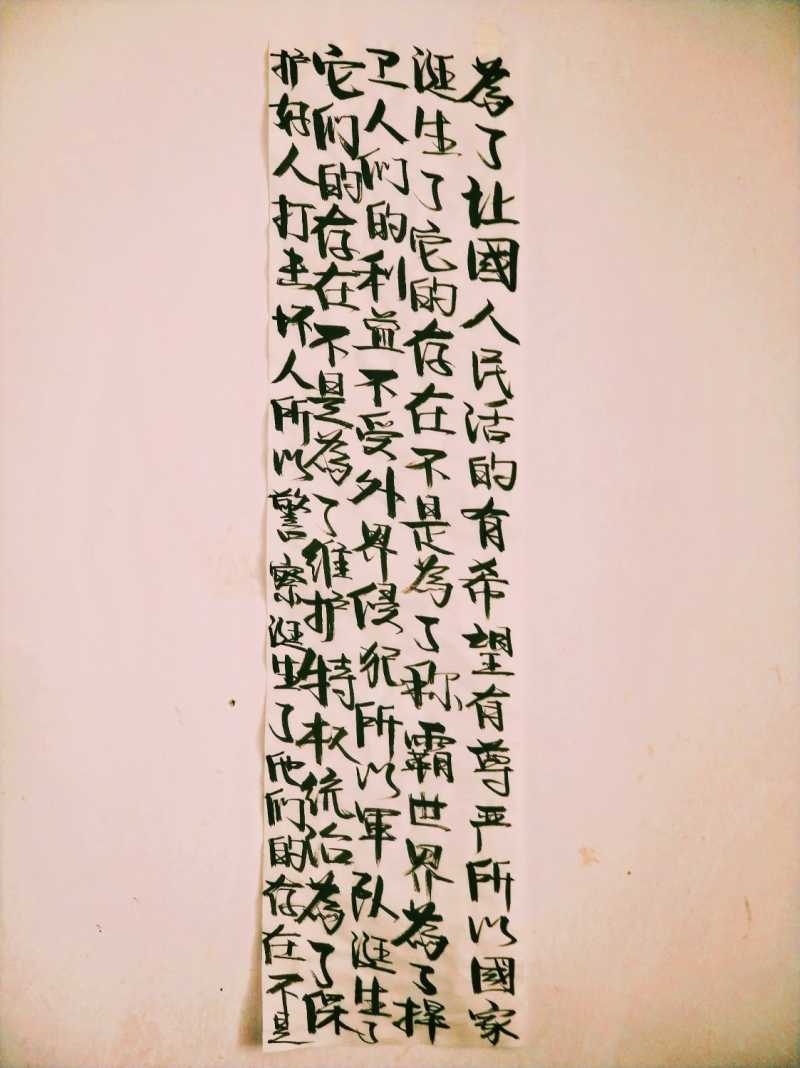 為了让國人民活的有希望有尊严所以國家
诞生了它的存在不是為了称霸世界為了捍
卫人们的利益不受外界侵犯所以軍队诞生了
它们的存在不是為了维护特权统治為了保
护好人打击坏人所以警察诞生了他们的存在不是